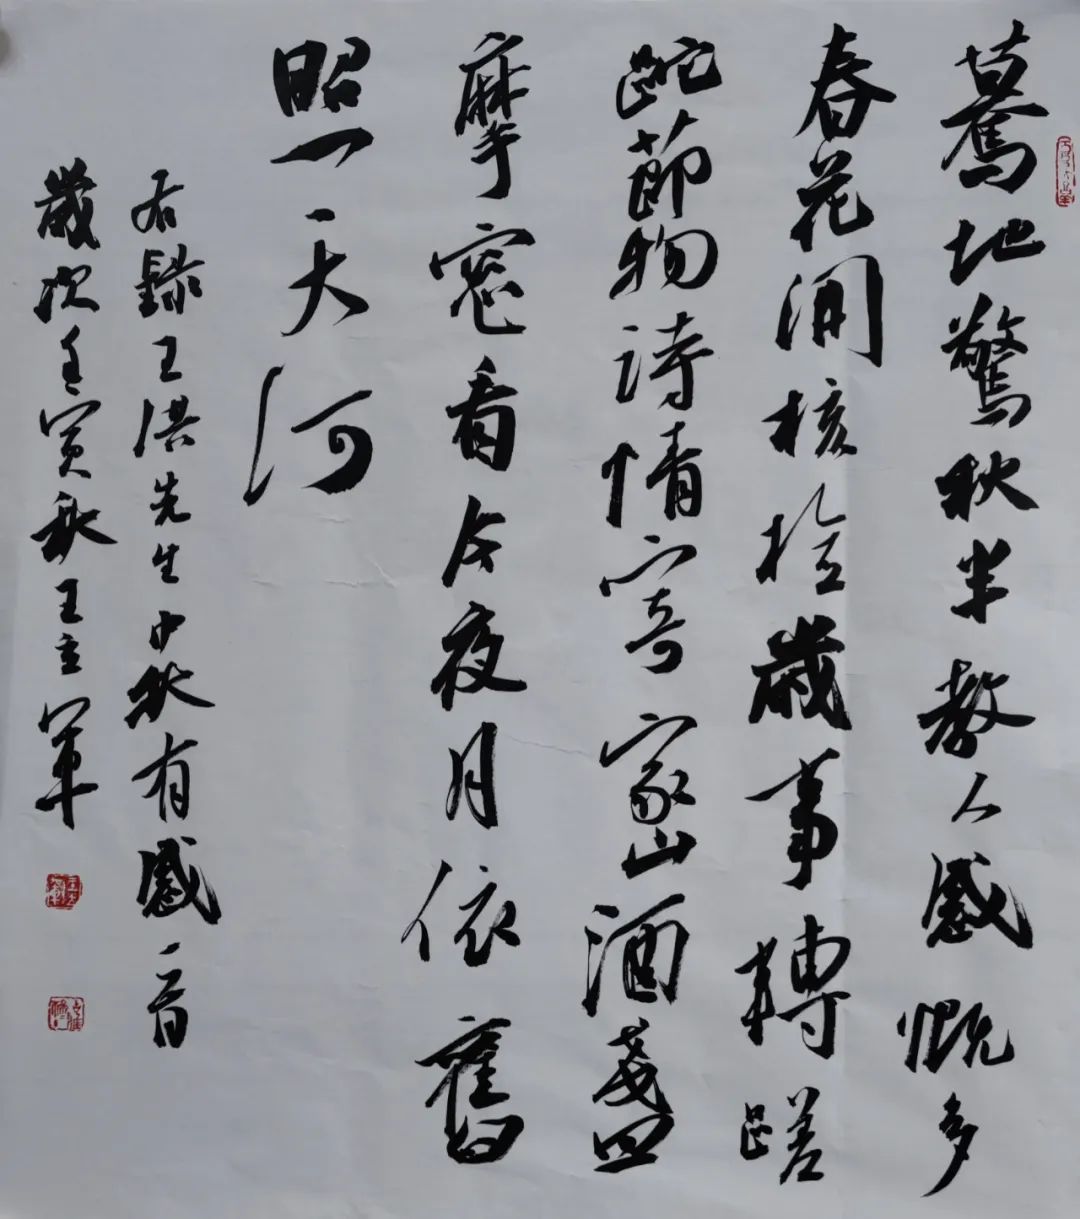 蓦地驚秋半教人感慨多
春花核檢歲事轉蹉
跎節物詩情寄家山酒盞
摩窓看今夜月依舊
照天河
右錄王先生中秋有感一首
歲次壬寅秋王主軍